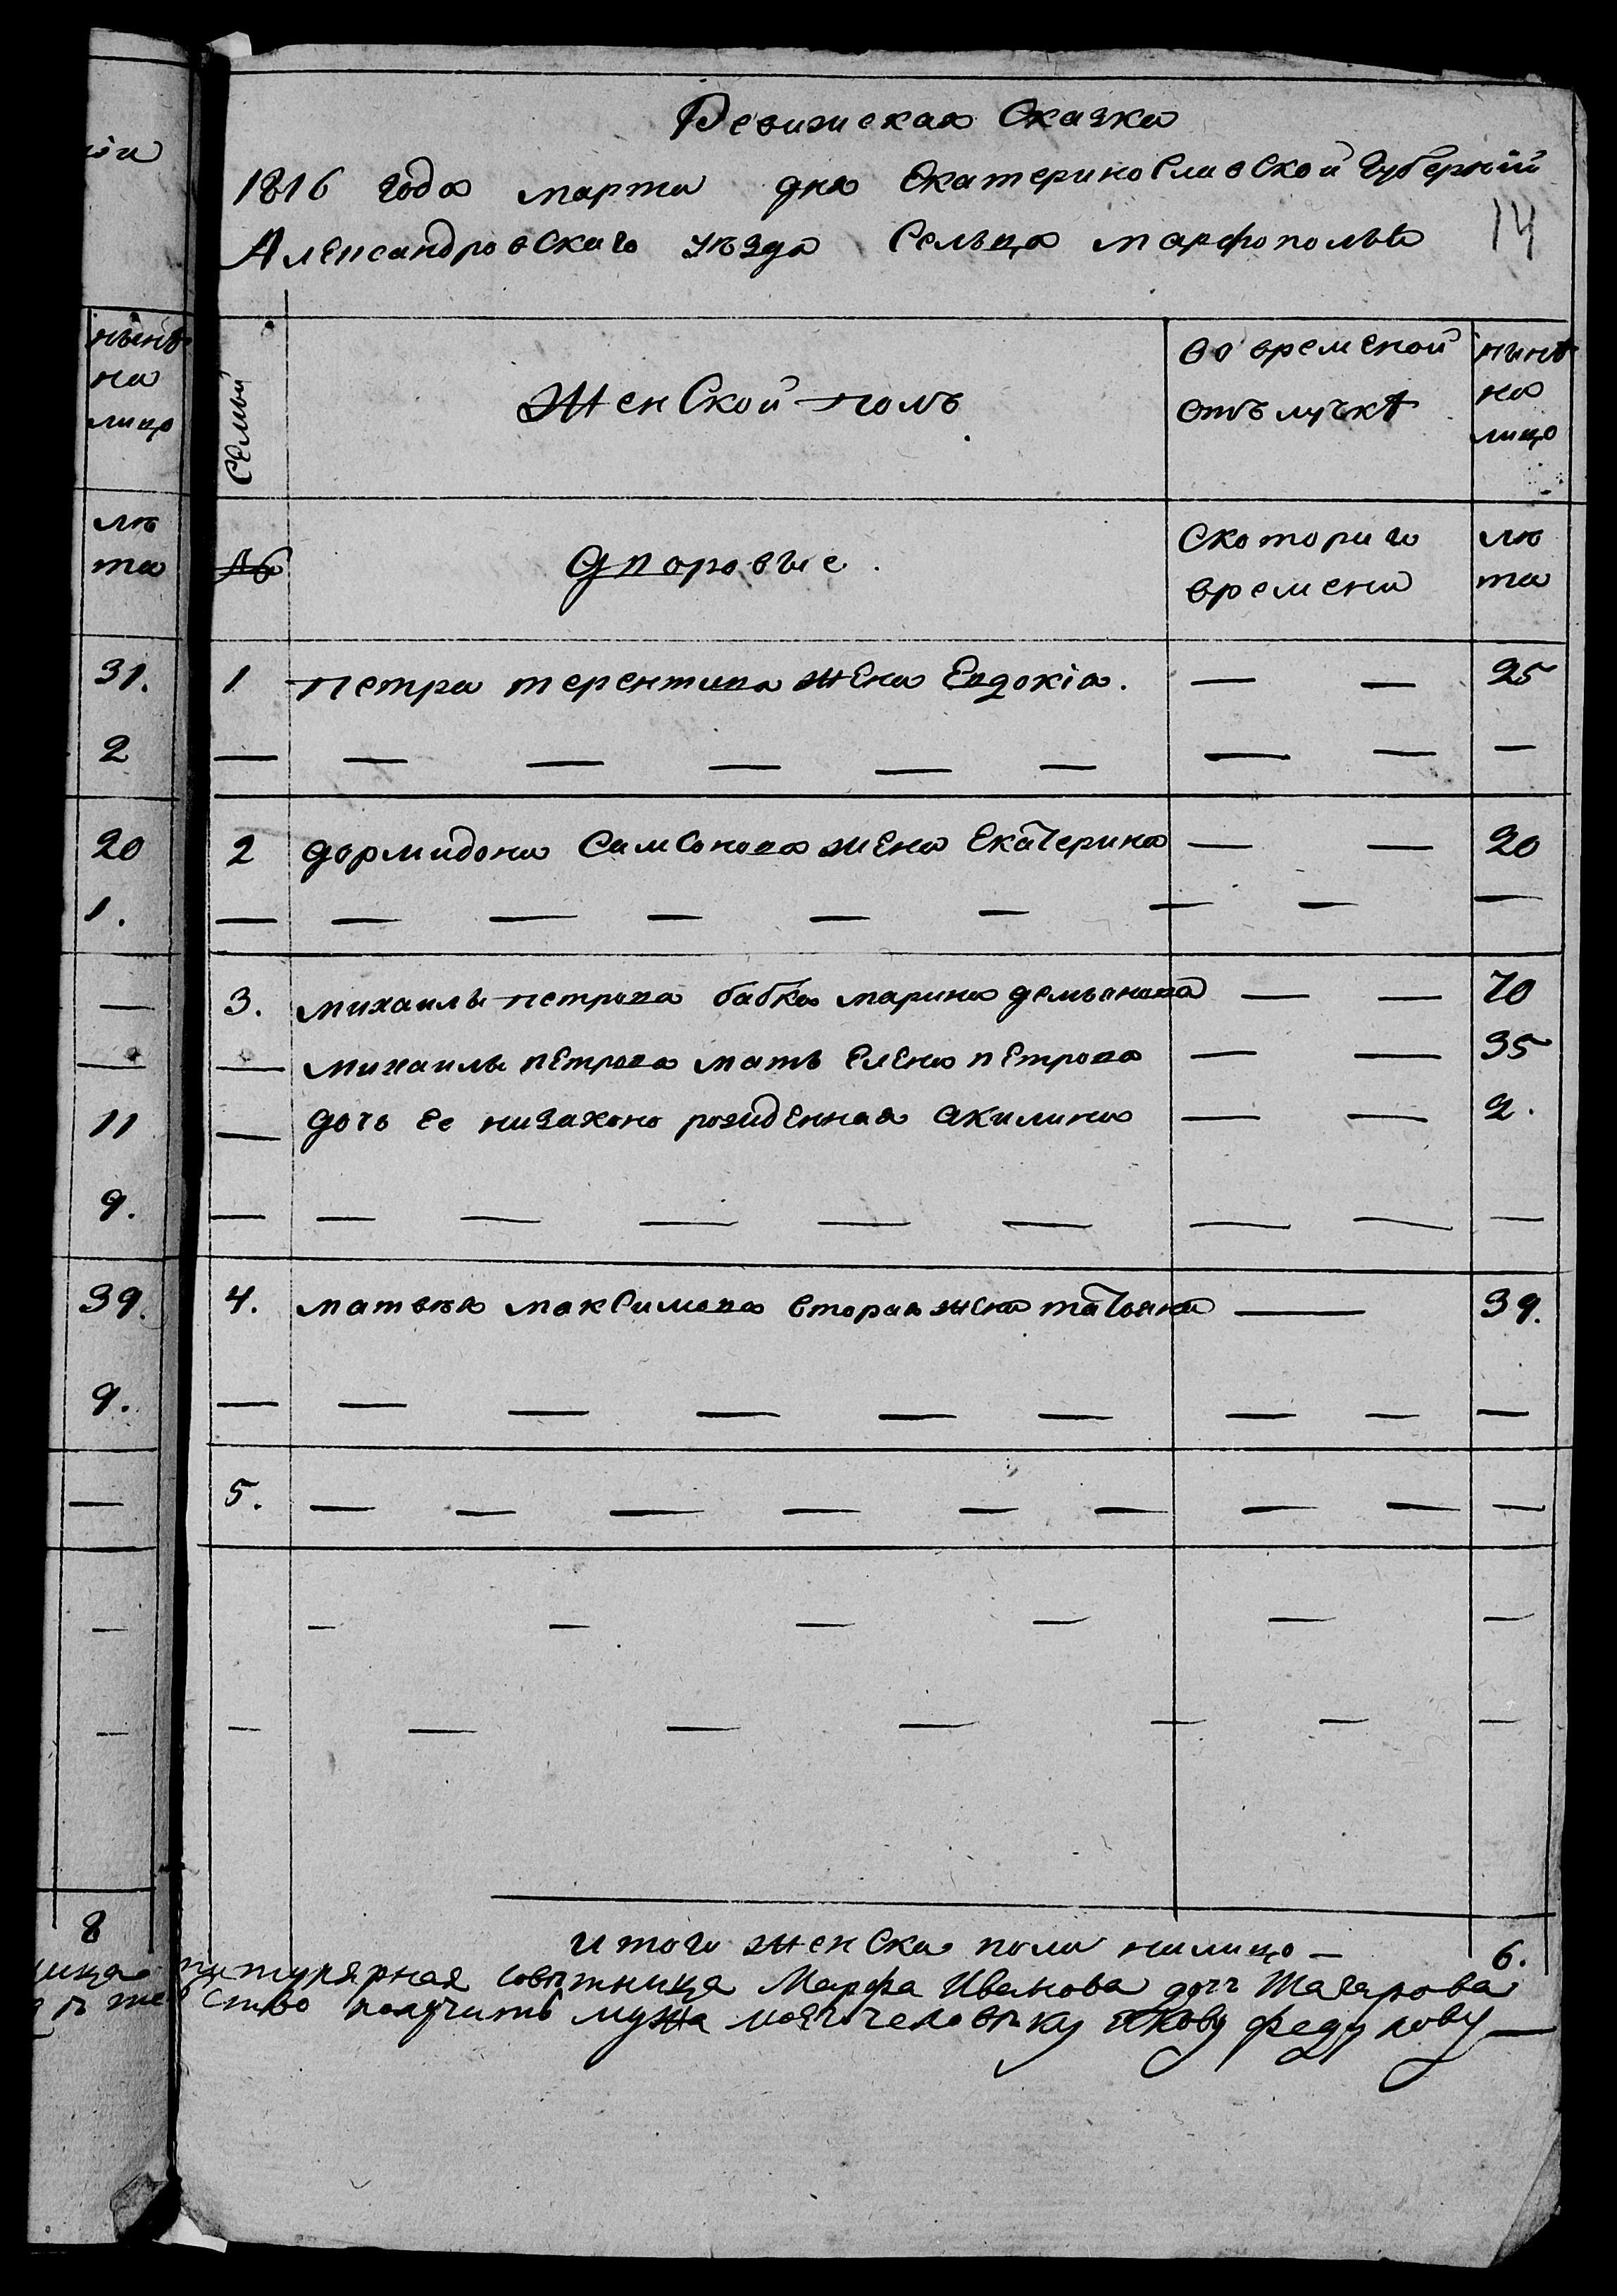 ніи
нынѣ
на
лицо
лѣ
та
31.
2
20
1.
11
9.
39.
9.
8
Ревижская Сказка
1816 года марта дня Екатеринославской Губерніи
Александровскаго уѣзда Сельца марфополья
14
Семьи
Женской полъ
во временой
отълучкѣ
нынѣ
на
лицо
№
Дворовые.
Скотораго
времени
лѣ
та
1 Петра терентива жена Евдокіа. — — 25
— — — — — — — — —
2 дормидона Самсонова жена Екатерина — — 20
— — — — — — — — —
3. михаилы петрова бабка марина демьянова — — 70
— михаилы петрова мать Елена петрова — — 35
— дочь ее низаконо рожденная акилина — — 2.
— — — — — — — — —
4. матвѣя максимова вторая жена татьяна — 39.
— — — — — — — — —
5. — — — — — — — — —
— — — — — —
— — — — — — —
итого женска пола налицо — 6.
титулярная совѣтница Марфа Иванова дочь
ство получить мужа моего человѣку якову федулову —